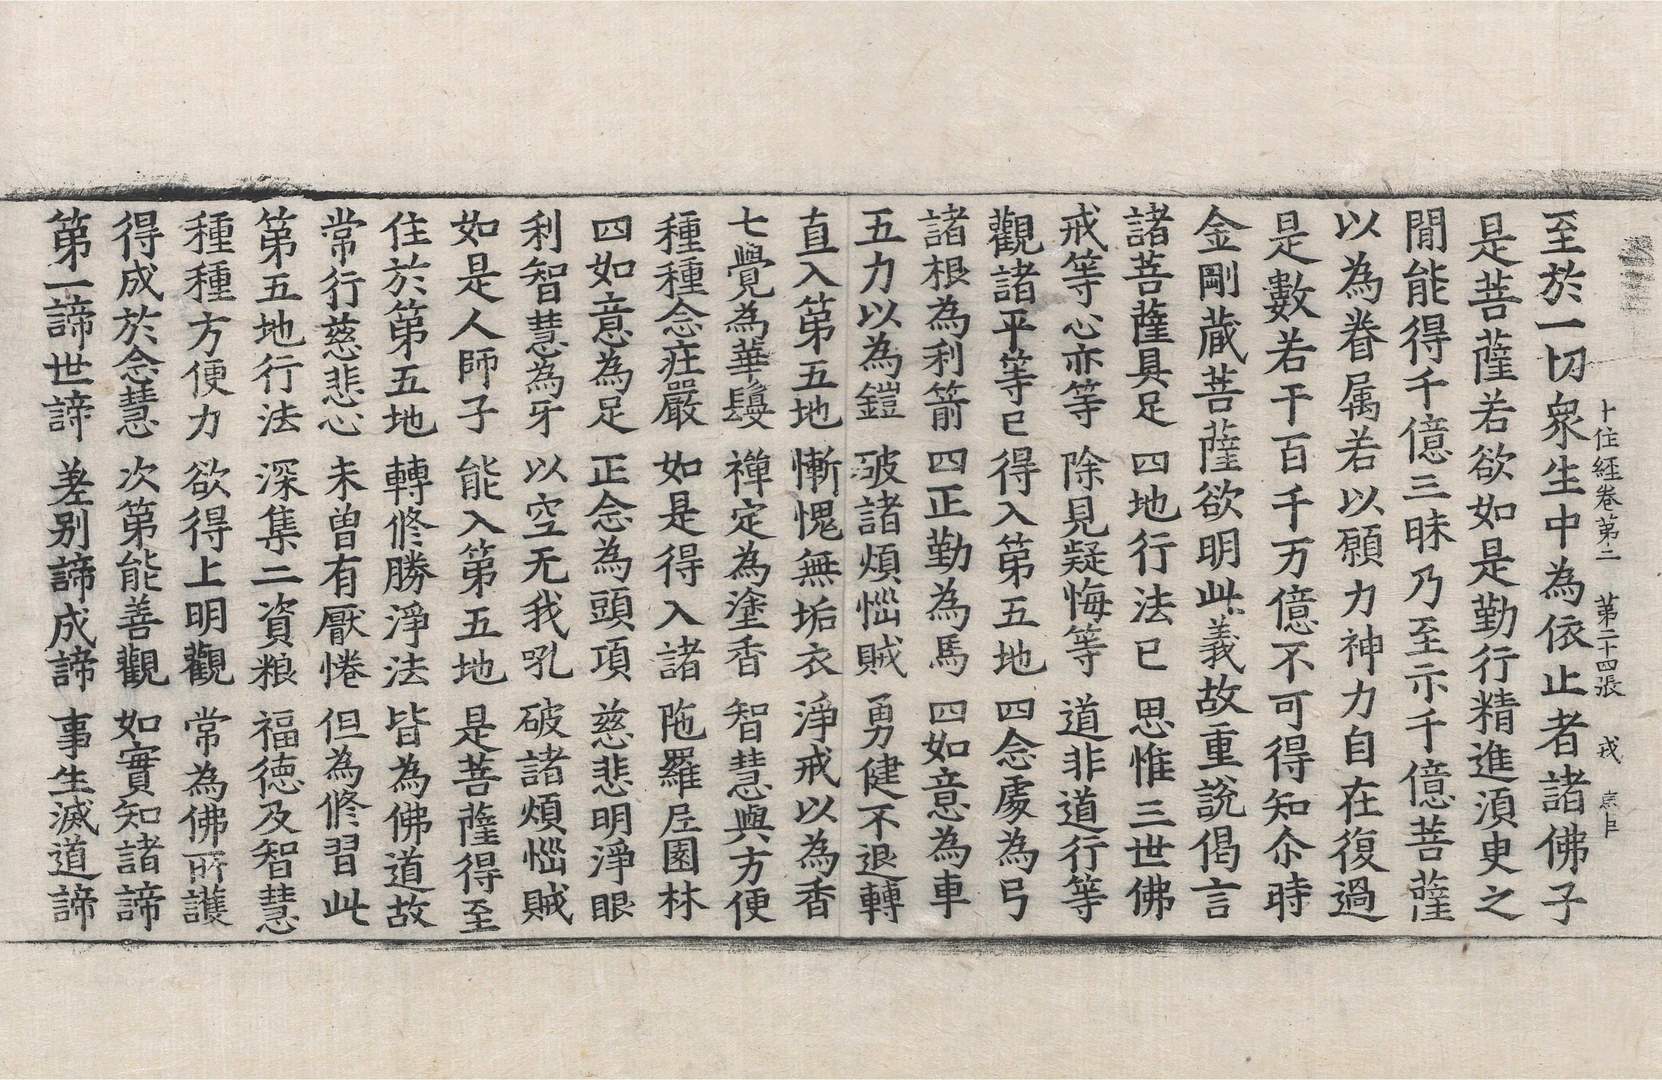 十住經卷第二　第二十四張　戎
至於一切衆生中為依止者諸佛子
是菩薩若欲如是勤行精進湏臾之
間能得千億三昧乃至示千億菩薩
以為眷属若以願力神力自在復過
是數若干百千万億不可得知尒時
金剛蔵菩薩欲明此義故重說偈言
諸菩薩具足　四地行法已　思惟三世佛
戒等心亦等　除見疑悔等　道非道行等
觀諸平等已　得入第五地　四念處為弓
諸根為利箭　四正勤為馬　四如意為車
五力以為鎧　破諸煩惱賊　勇健不退轉
直入第五地　慚愧無垢衣　淨戒以為香
七覺為華鬘　禪定為塗香　智慧與方便
種種念莊嚴　如是得入諸　陁羅层園林
四如意為足　正念為頭項　慈悲明淨眼
利智慧為牙　以空无我吼　破諸煩惱賊
如是人師子　能入第五地　是菩薩得至
住於第五地　轉修勝淨法　皆為佛道故
常行慈悲心　未曽有厭惓　但為修習此
第五地行法　深集二資粮　福德及智慧
種種方便力　欲得上明觀　常為佛所護
得成於念慧　次第能善觀　如實知諸諦
第一諦世諦　差别諦成諦　事生滅道諦